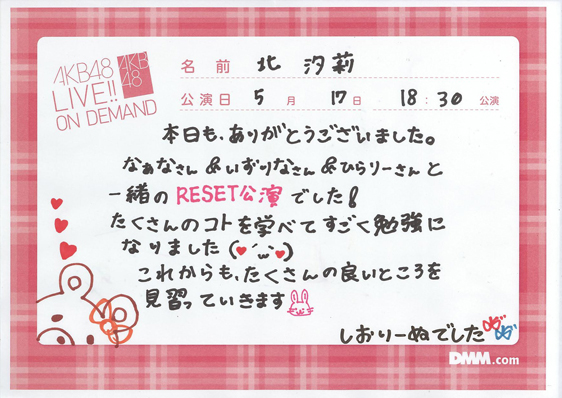 AKB48
LIVE!!
ON DEMAND
AKB
48
名前 北 汐莉
公演日 5月 17日 18:30 公演
本日も、ありがとうございました。
なぁなさん&いずりなさん&ひらりーさんと
一緒のRESET公演でした!
たくさんのコトを学べてすごく勉強に
なりました(♥´ω`♥)
これからも、たくさんの良いところを
見習っていきます
しおりーぬでした
DMM.com